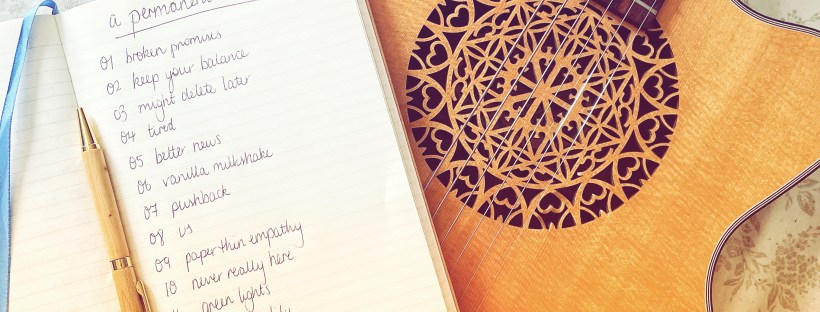 a permanent
01 broken promises
02 keep your balance
03 might delete later
04 tired
05 better news
06 vanilla milkshake
07 pushback
08 us
09 paper thin empathy
10 never really here
green lights